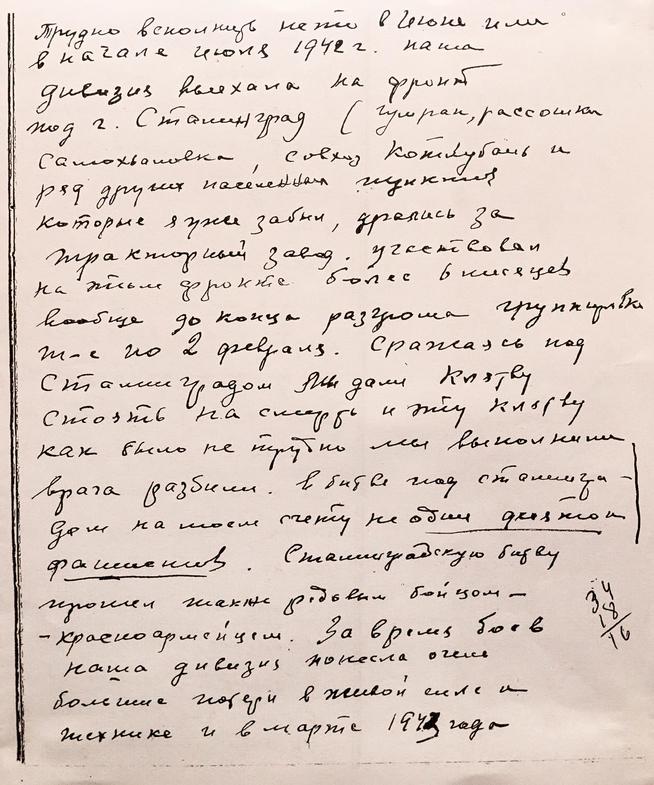 Трудно вспомнить не то в Июне или
в начале июля 1942 г. наша
дивизия выехала на фронт
под г. Сталинград (Гумрак, рассошка
самохваловка, совхоз Котлубань и
ряд других населенных пунктов
которые я уже забыл, дрались за
тракторный завод. участвовал
на этом фронте более 6 месяцев
вообще до конца разгрома группировки
т-е по 2 февраля. Сражаясь под
Сталинградом Мы дали Клятву
стоять на смерть и эту Клятву
как было не трудно мы выполнили
врага разбили. в битве под сталингра-
дом на моем счету не один десяток
фашистов. Сталинградскую битву
прошел также рядовым бойцом-
-красноармейцем. За время боев
наша дивизия понесла очень
большие потери в живой силе и
технике и в марте 1943 года
34
18
16